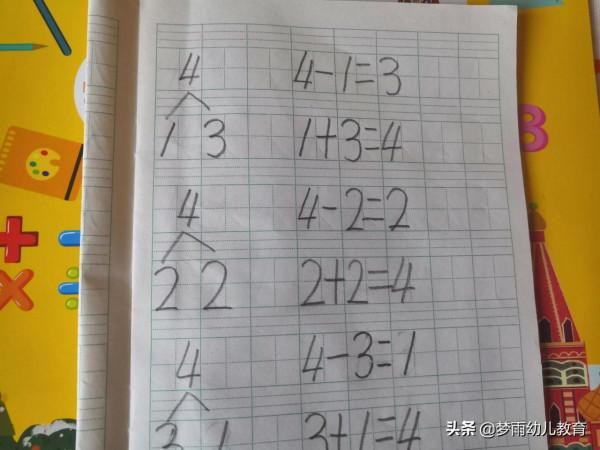 4 4-1=3
1 3 1+3=4
4 4-2=2
2 2 2+2=4
4 4-3=1
3 1 3+1=4
3
头条 @梦雨幼儿教育